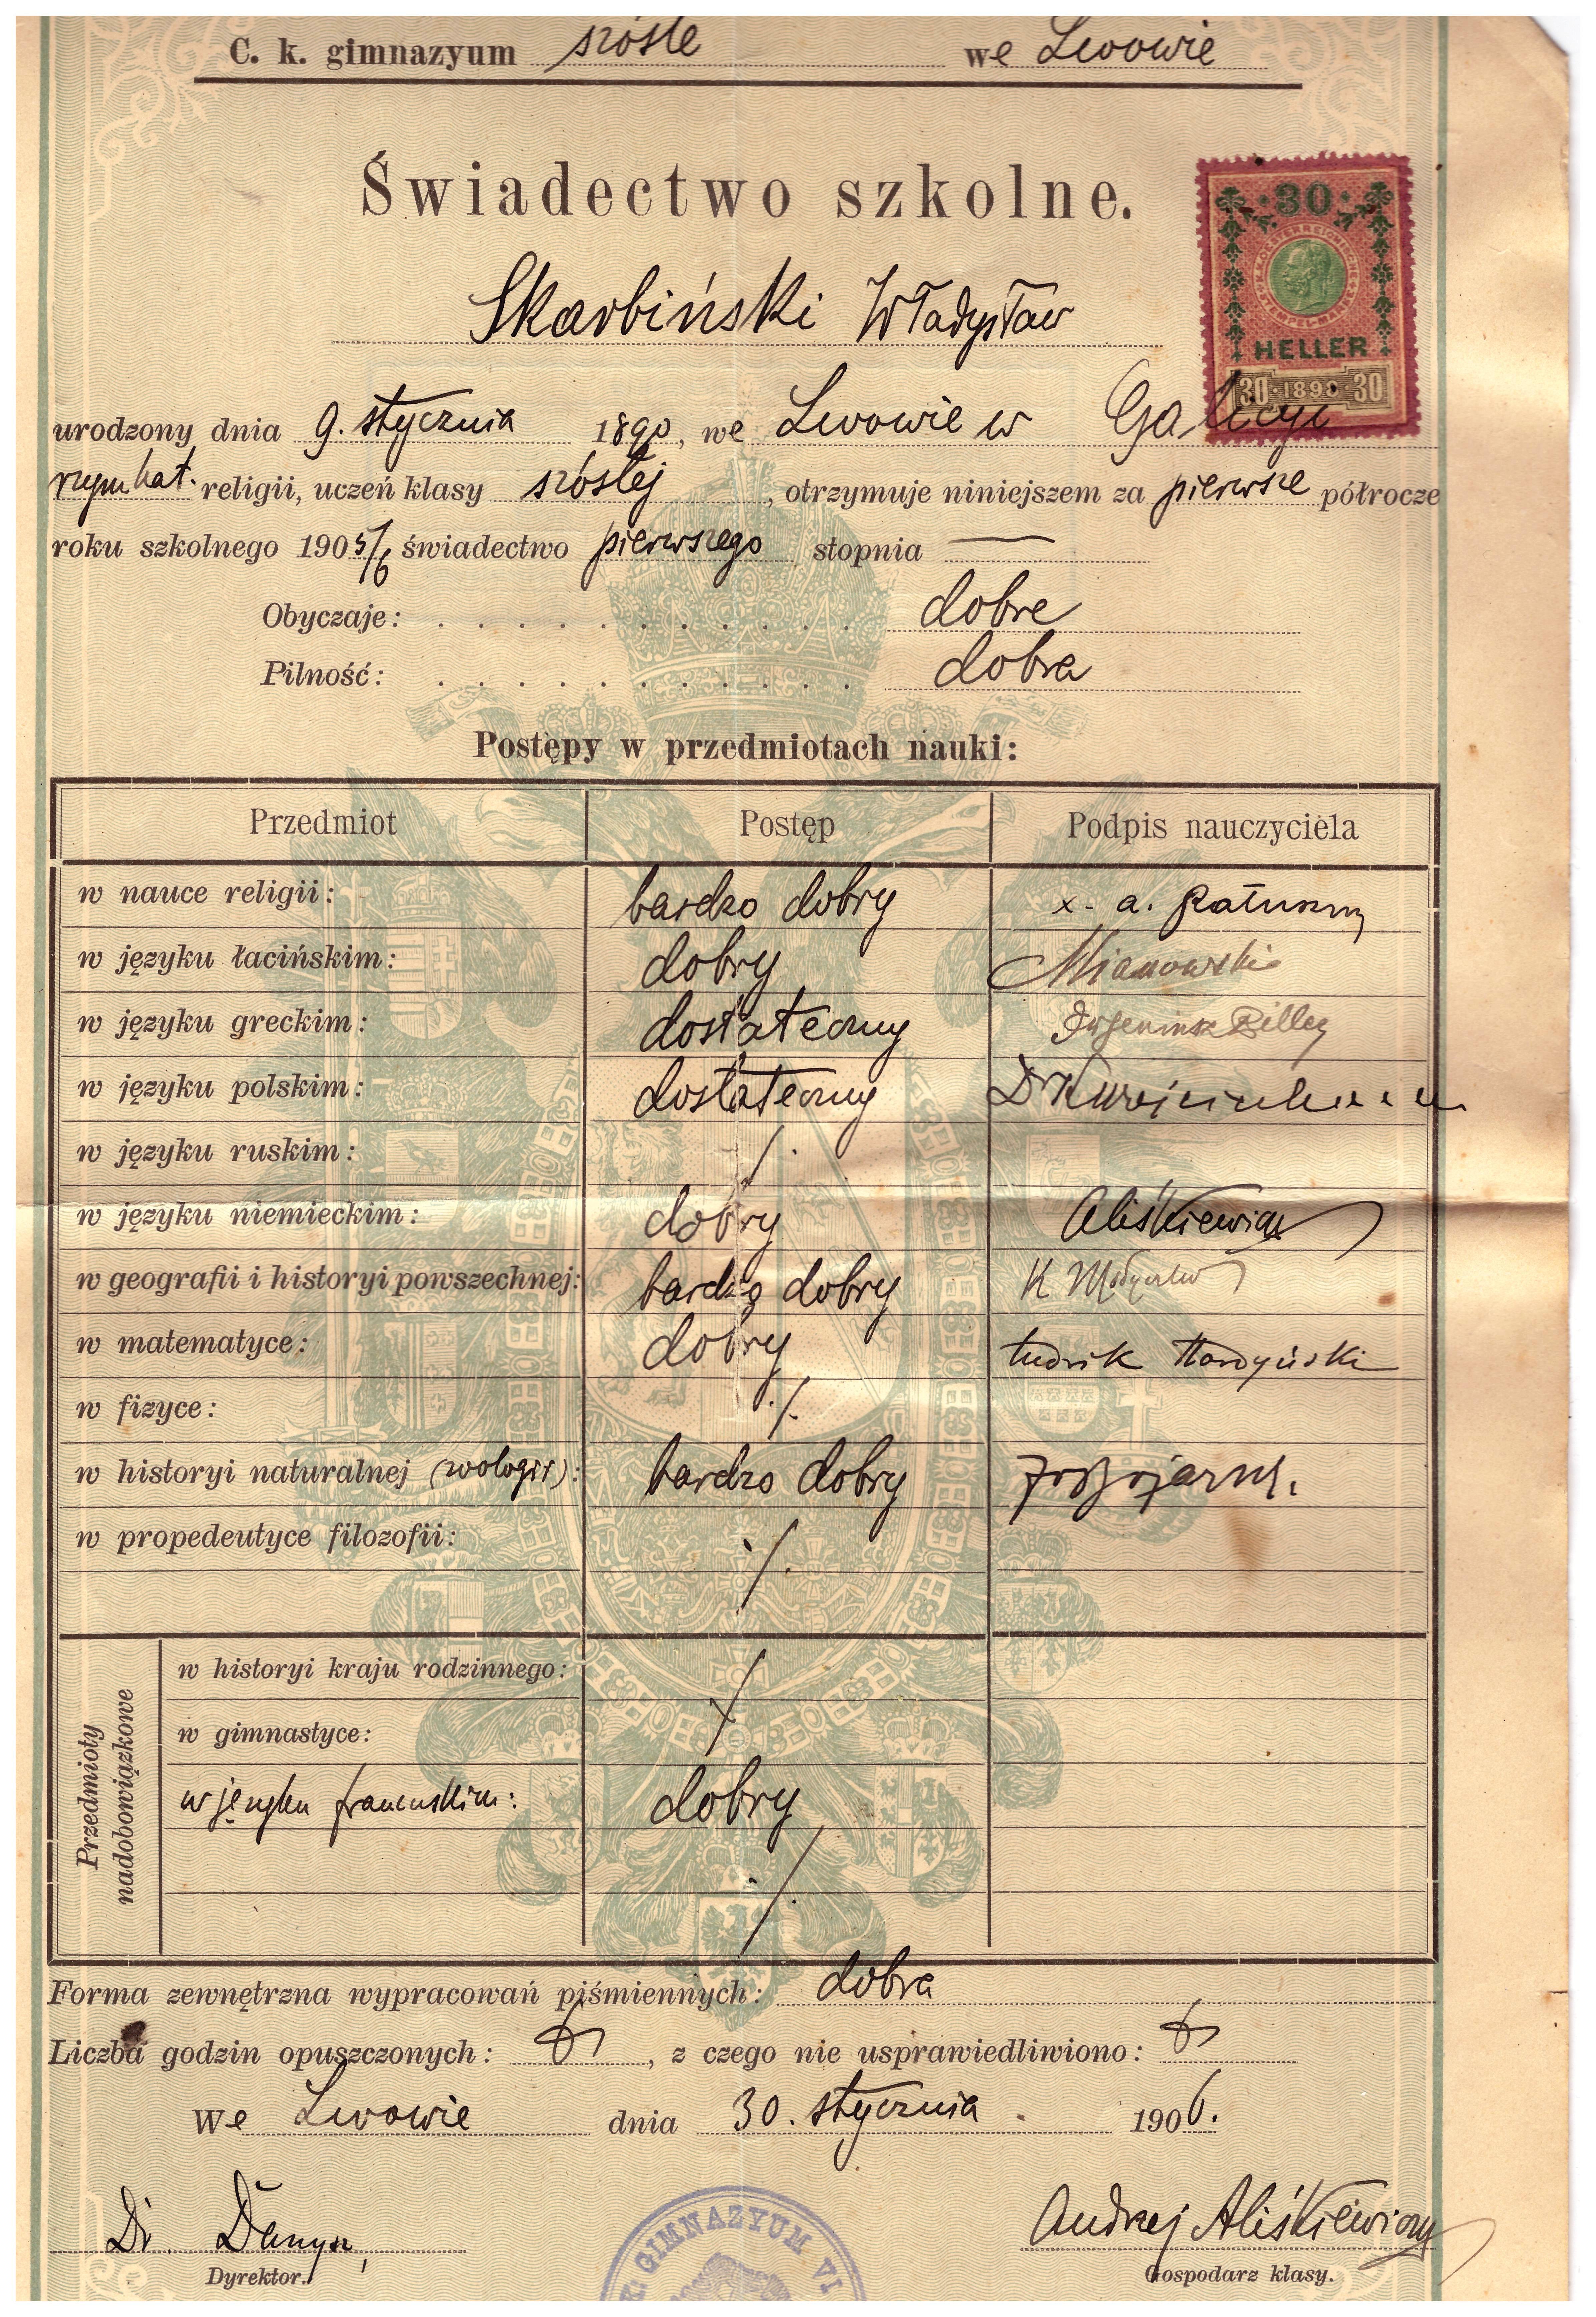 C. k. gimnazyum szóste we Lwowie
Świadectwo szkolne.
30
K.K. OESTERREICHISCHE STEMPEL-MARKE
HELLER
30 · 1898 · 30
Skarbiński Władysław
urodzony dnia 9. stycznia 1890, we Lwowie w Galicyi
rzym kat. religii, uczeń klasy szóstej, otrzymuje niniejszem za pierwsze półrocze
roku szkolnego 1905/6 świadectwo pierwszego stopnia —
Obyczaje: . . . . . . . . . . . dobre
Pilność: . . . . . . . . . . . dobra
Postępy w przedmiotach nauki:
Przedmiot Postęp Podpis nauczyciela
w nauce religii: bardzo dobry x. a.
w języku łacińskim: dobry Mianowski
w języku greckim: dostateczny
w języku polskim: dostateczny Dr
w języku ruskim: ./.
w języku niemieckim: dobry Aliśkiewicz
w geografii i historyi powszechnej: bardzo dobry K
w matematyce: dobry
w fizyce: ./.
w historyi naturalnej (zoologii): bardzo dobry
w propedeutyce filozofii: ./.
Przedmioty nadobowiązkowe
w historyi kraju rodzinnego:
w gimnastyce:
w języku francuskim: dobry
./.
Forma zewnętrzna wypracowań piśmiennych: dobra
Liczba godzin opuszczonych: , z czego nie usprawiedliwiono:
We Lwowie dnia 30. stycznia 1906.
Dr. Danysz, Andrzej Aliśkiewicz
Dyrektor. Gospodarz klasy.
KI GIMNAZYUM VI